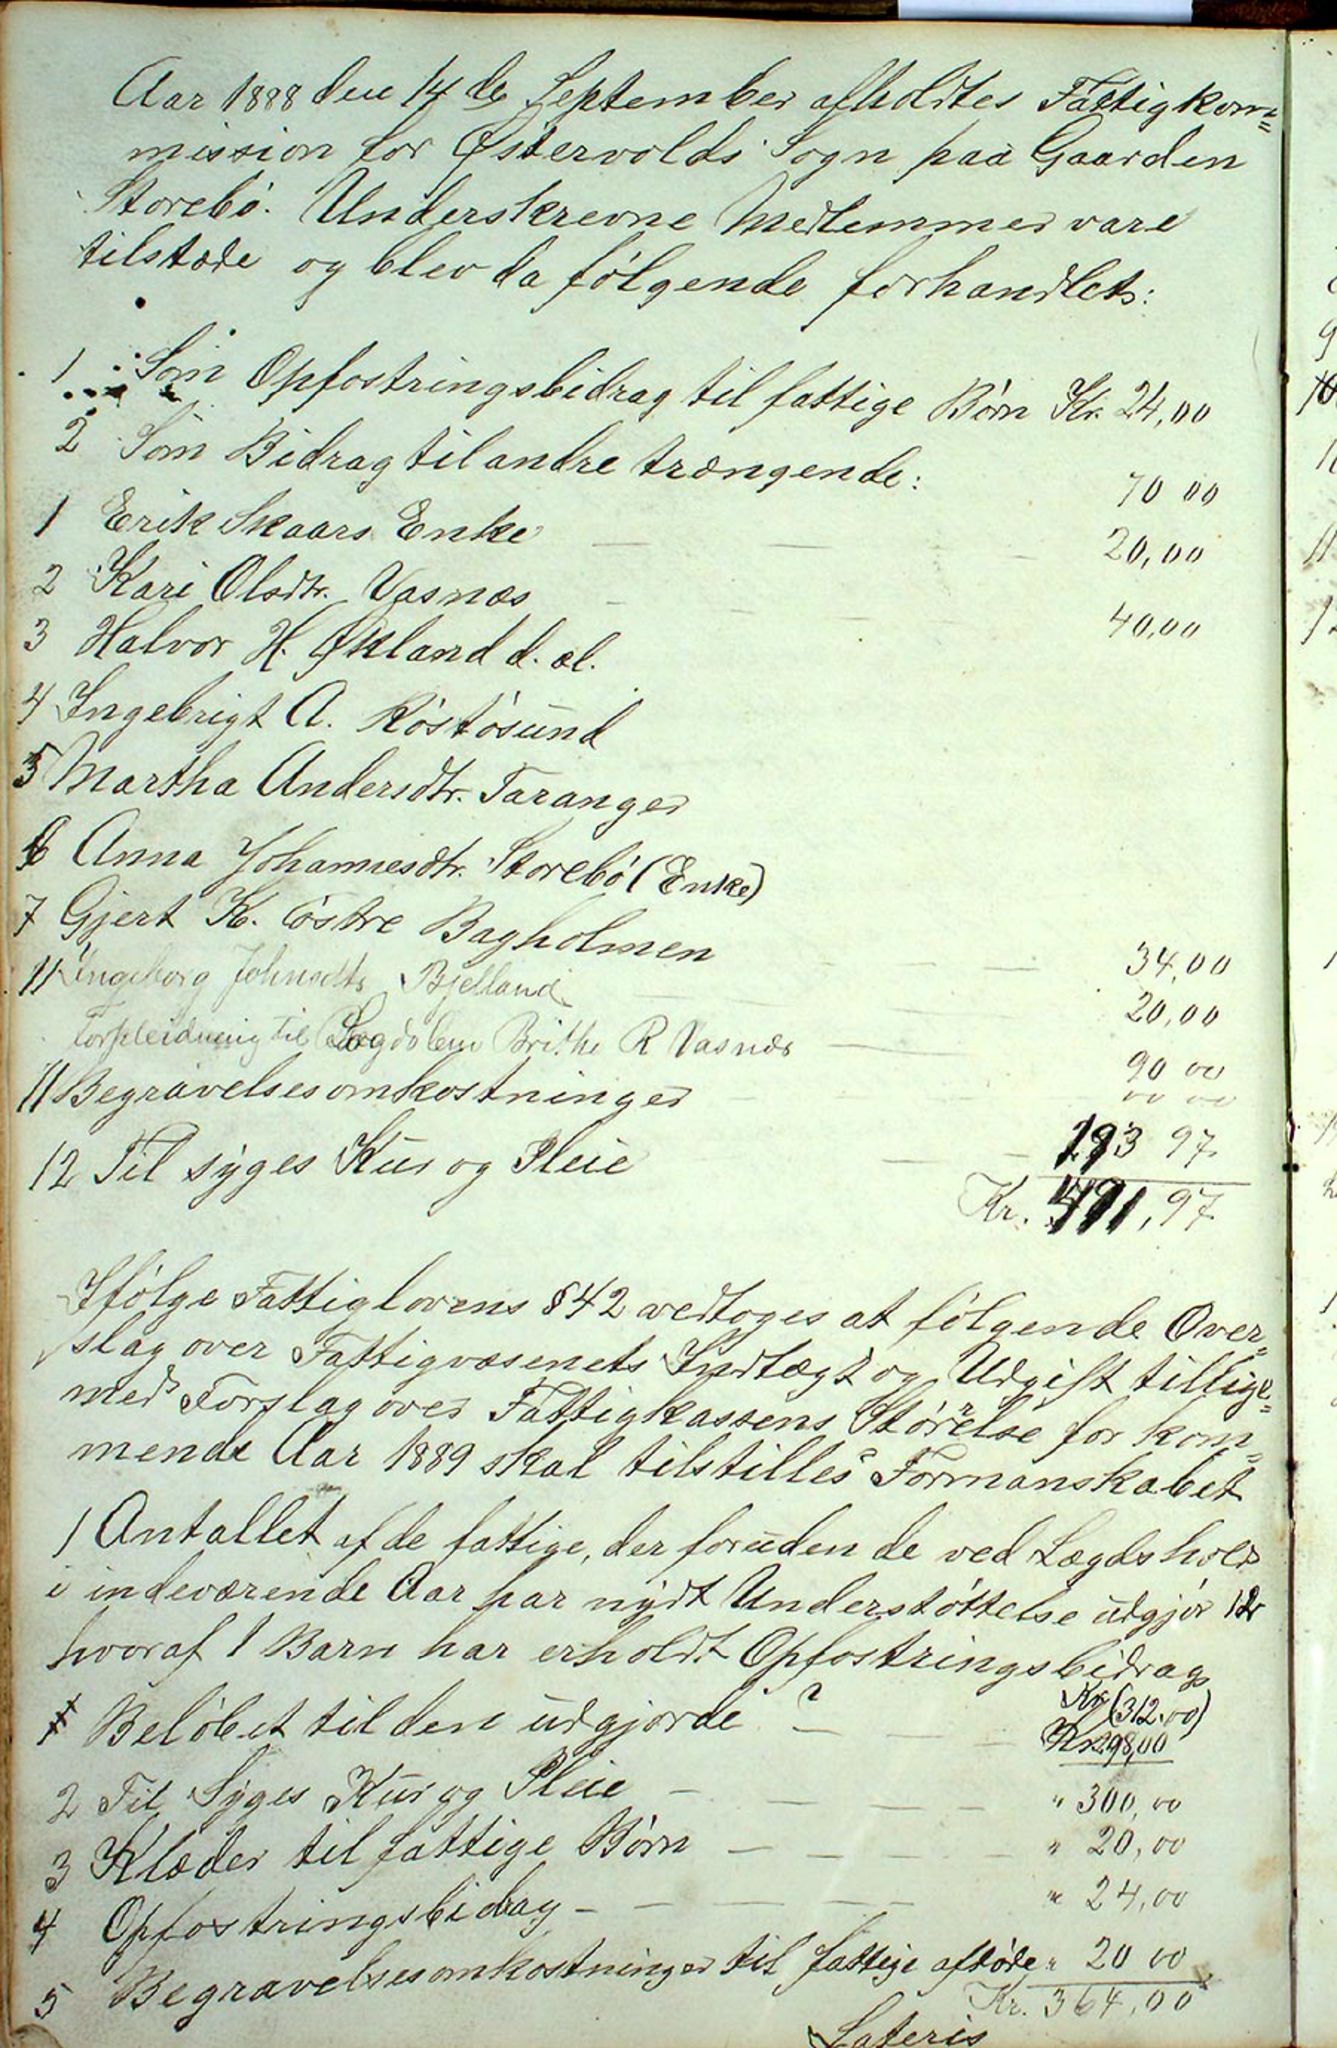 Aar 1888 den 14de September afholdtes Fattigkom=
mission for Østervolds Sogn paa Gaarden
Storebö. Underskrevne Medlemmer vare
tilstæde og blev da følgende forhandlet:
1 Som Opfostringsbidrag til fattige Börn Kr. 24,00
2 Som Bidrag til andre trængende:
70 00
1 Erik Skaars Enke 20,00
2 Kari Olsdtr. Vasnæs 40,00
3 Halvor H. Økland d. æl.
4 Ingebrigt A. Röstösund
5 Martha Andersdtr. Taranger
6 Anna Johannesdtr. Storebö (Enke)
7 Gjert K. östre Bagholmen 34,00
11 Ingeborg Johnsdtr Bjelland 20,00
til Lægdslem Brithe R Vasnæs 90 00
11 Begravelsesomkostninger 00 00
12 Til syges Kur og Pleie 193 97
Kr. 491,97
Ifölge Fattiglovens § 42 vedtoges at fölgende Over=
slag over Fattigvæsenets Indtægt og Udgift tillige=
med Forslag over Fattigkassens Störrelse for kom=
mende Aar 1889 skal tilstilles Formanskabet
1 Antallet af de fattige, der foruden de ved Lægdshold
i indeværende Aar har nydt Understöttelse udgjör 12
hvoraf 1 Barn har erholdt Opfostringsbidrag
Kr (312.00)
Belöbet til den udgjorde ? Kr 298,00
2 Til Syges Kur og Pleie " 300,00
3 Klæder til fattige Börn " 20,00
4 Opfostringsbidrag " 24,00
5 Begravelsesomkostninger til fattige afdöde " 20 00
Kr. 364,00
Lateris